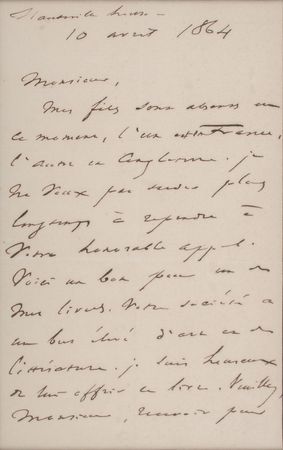 Hauteville house —
10 avril 1864
Monsieur,
Mes fils sont absents en
ce moment, l'un est en France,
l'autre en Angleterre. je
ne veux pas tarder plus
longtemps à répondre à
votre honorable appel.
Voici un bon pour un de
mes livres. Votre société a
un but élevé d'art et de
littérature. je suis heureux
de lui offrir ce livre. Veuillez,
Monsieur, recevoir pour